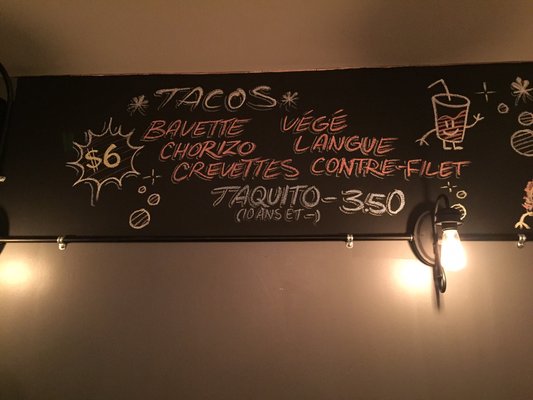 TACOS
$6
BAVETTE VÉGÉ
CHORIZO LANGUE
CREVETTES CONTRE-FILET
TAQUITO-3.50
(10 ANS ET -)